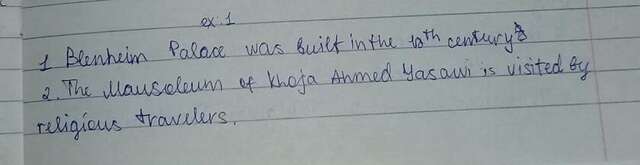 ex. 1
1 Blenheim Palace was built in the 18th century
2. The Mausoleum of Khoja Ahmed Yasawi is visited by
religious travelers.